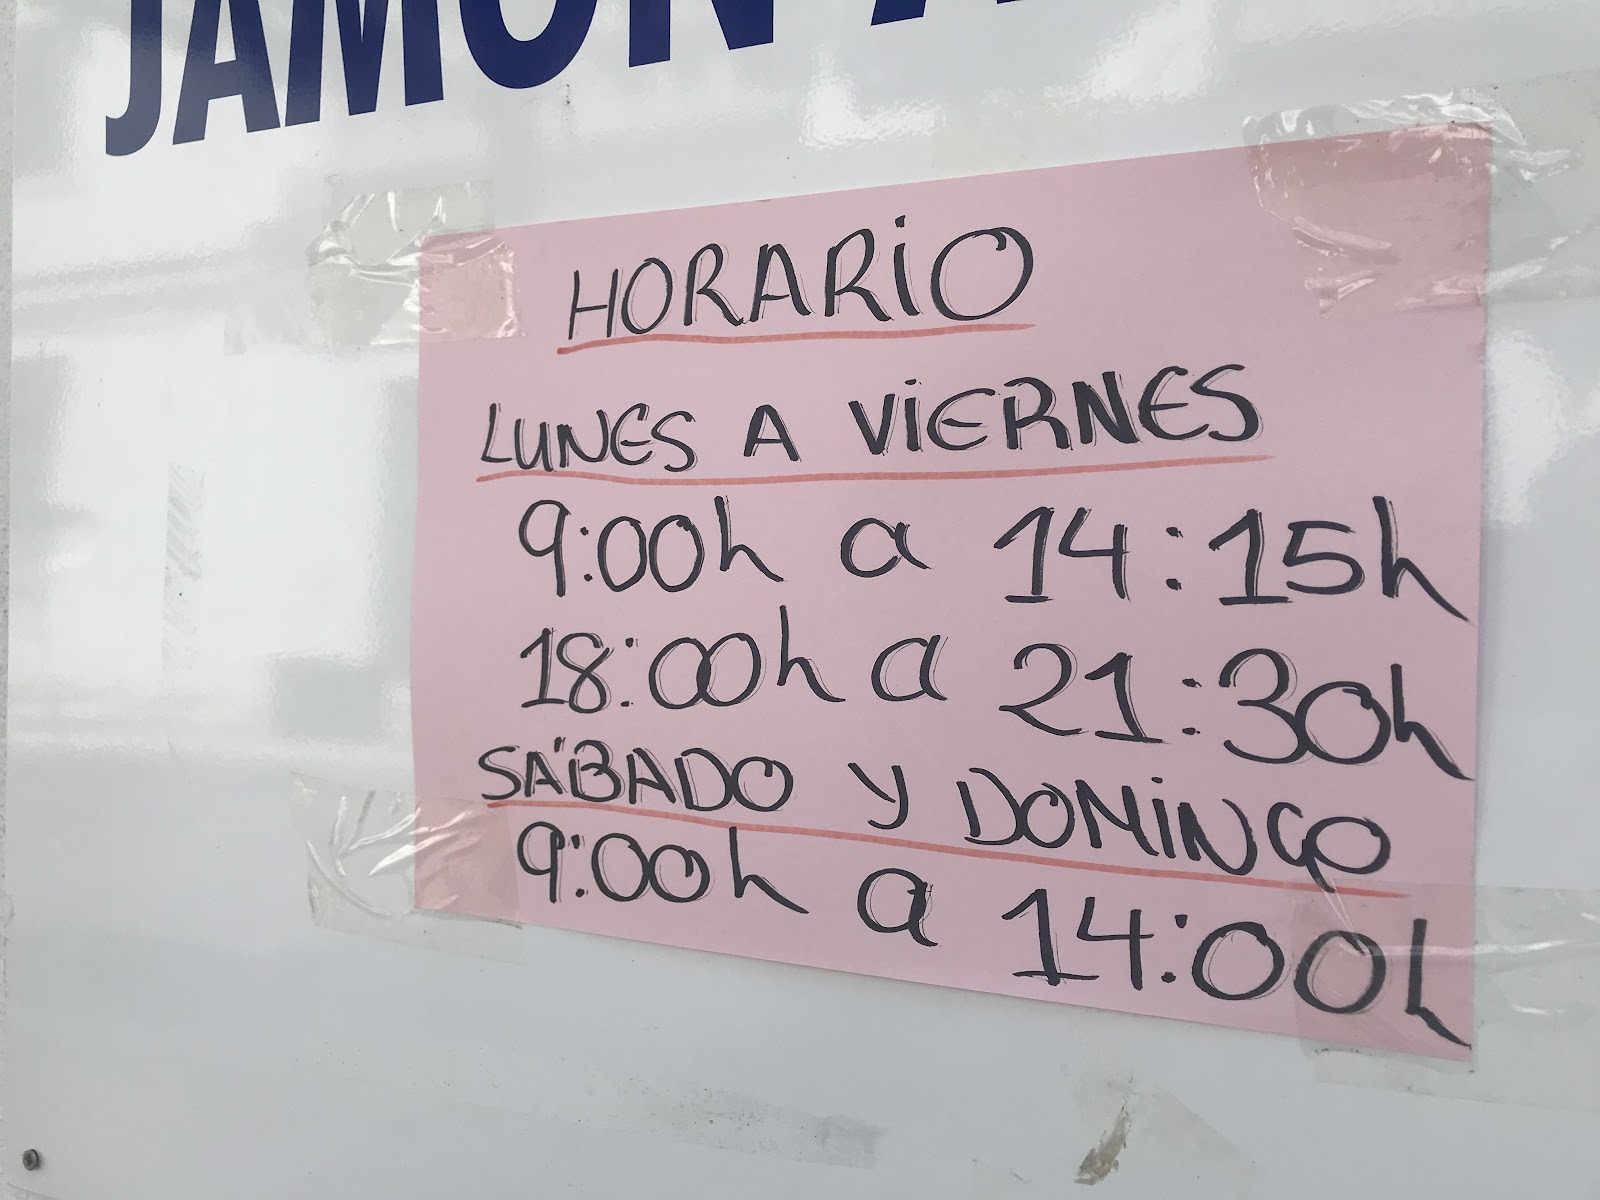 JAMON
HORARIO
LUNES A VIERNES
9:00h a 14:15h
18:00h a 21:30h
SÁBADO Y DOMINGO
9:00h a 14:00h